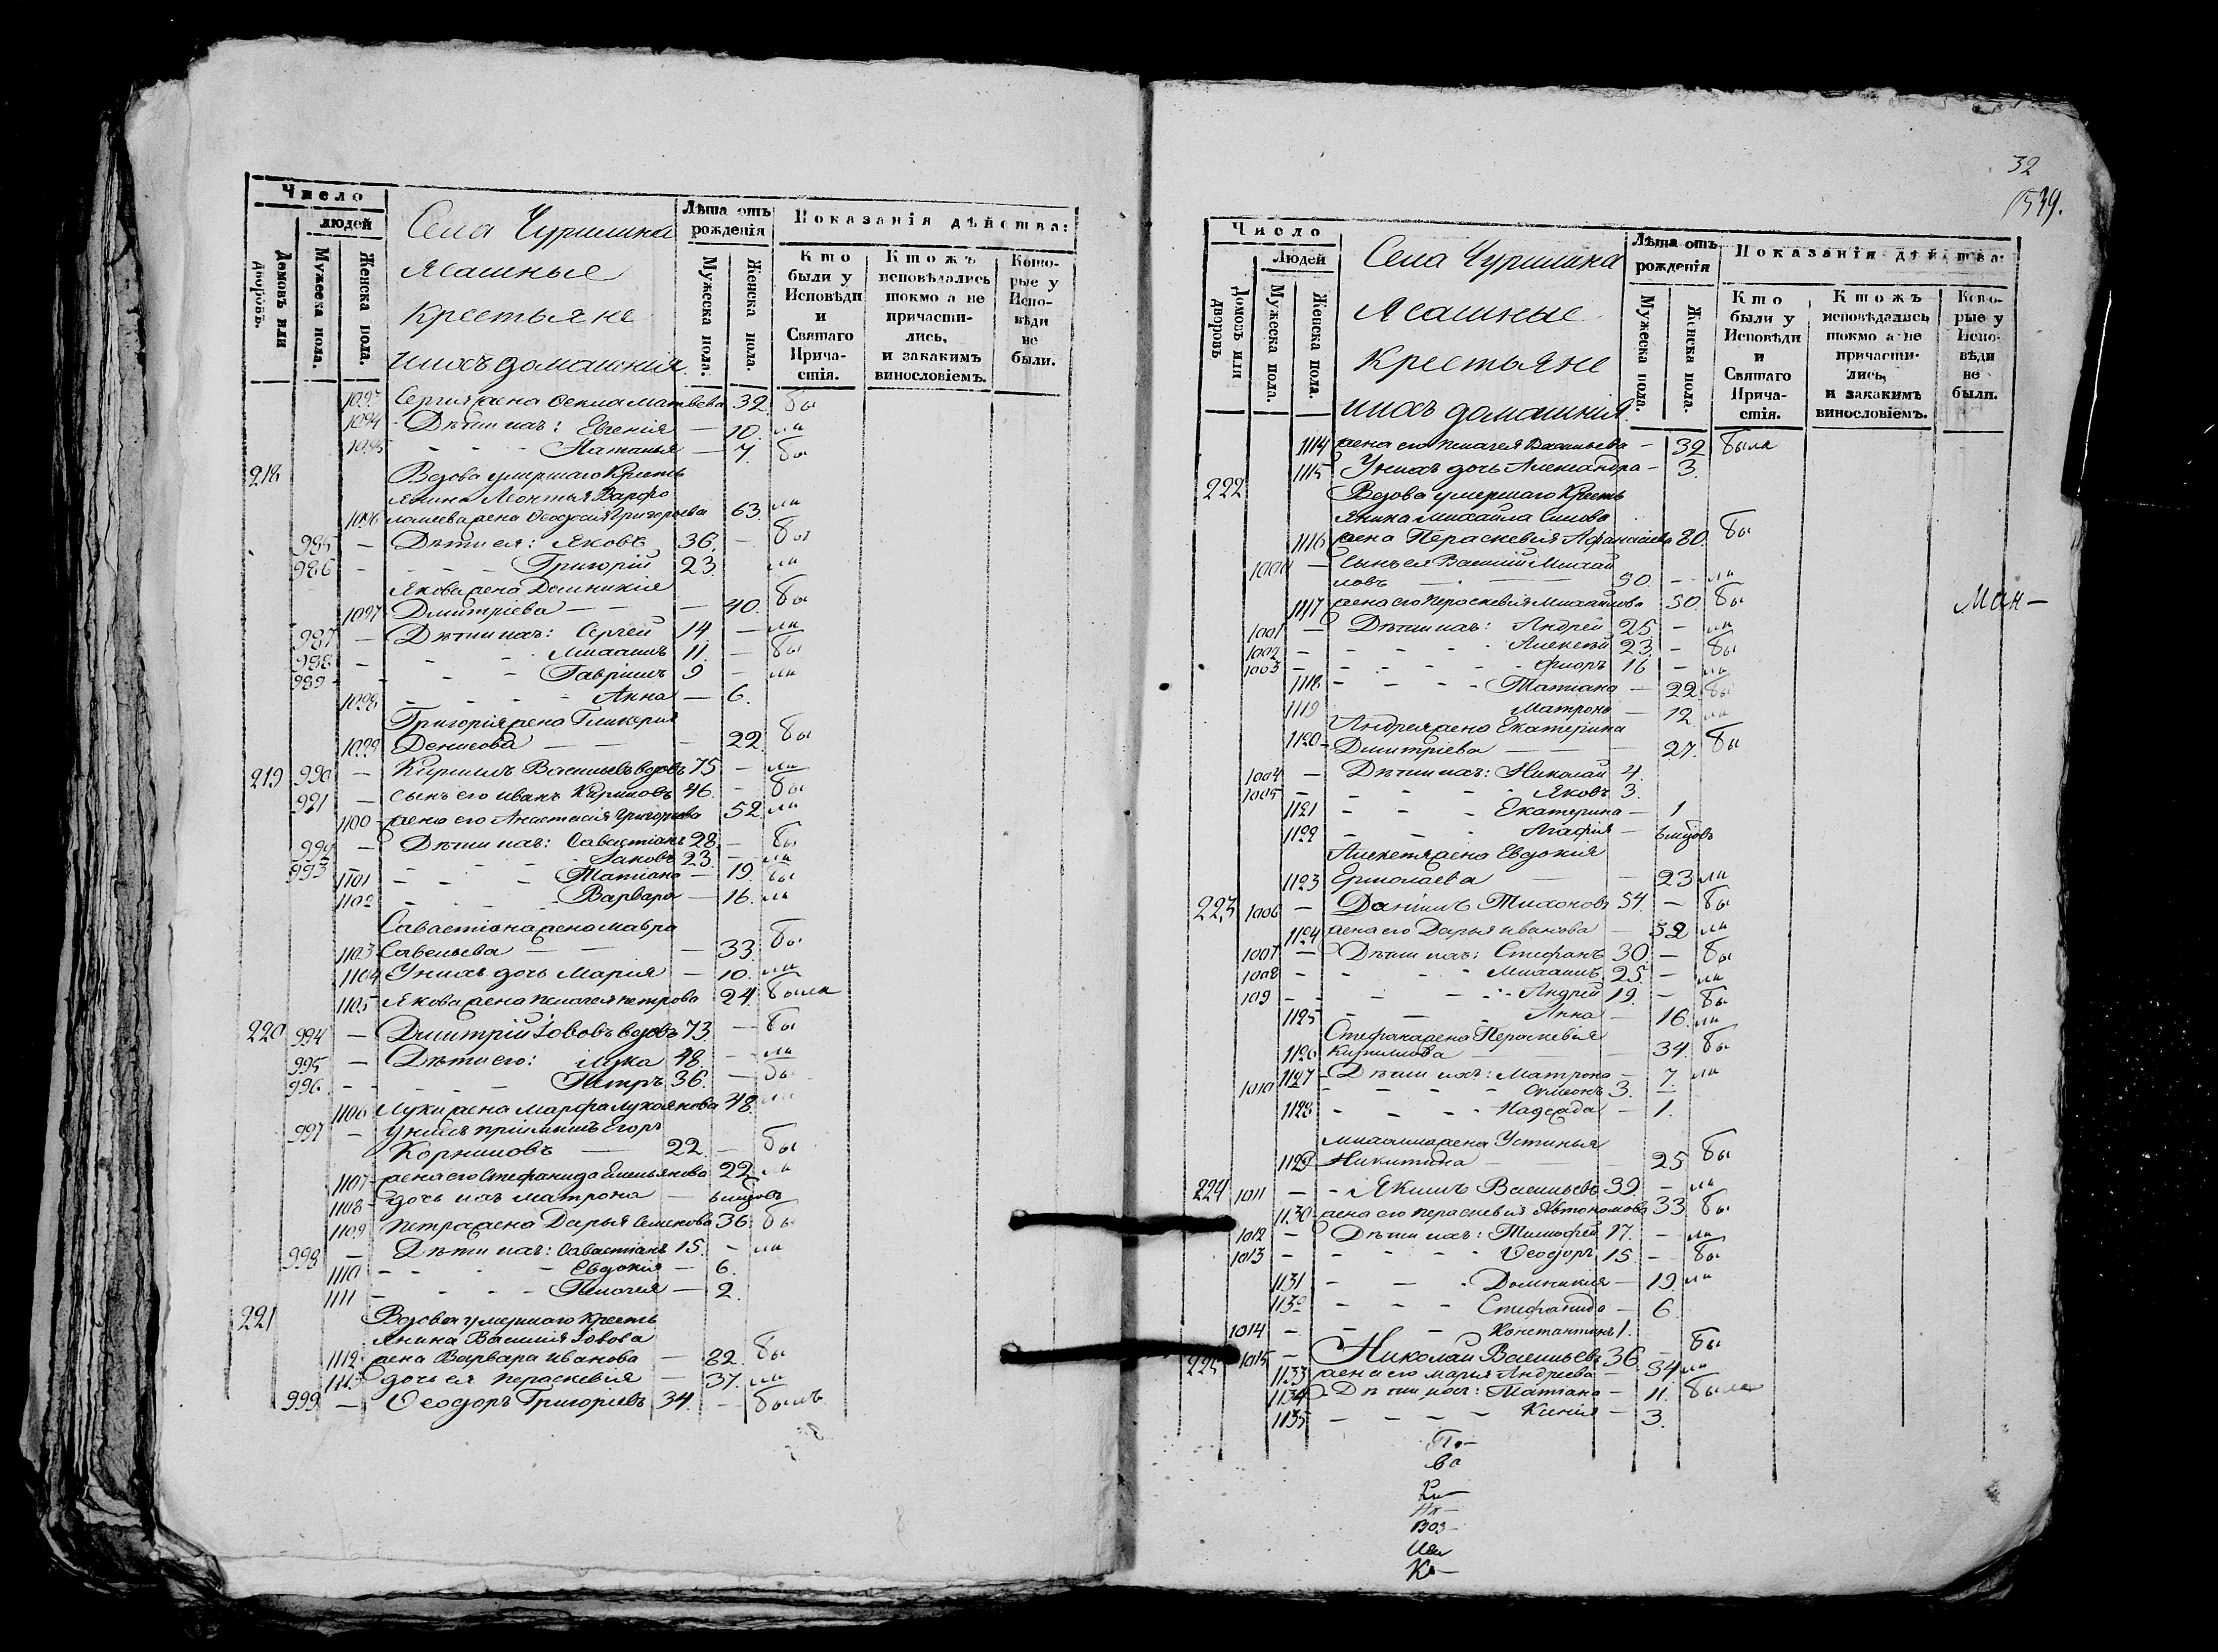 Число
людей
Домовъ или дворовъ.
Мужеска пола.
Женска пола.
Села Чурилина
Ясашные
Крестьяне
и ихъ домашнiя
Лѣта отъ рожденiя
Мужеска пола.
Женска пола.
Показанiя дѣйства:
Кто были у Исповѣди и Святаго Прича-стiя.
Ктожъ исповѣдались токмо а не причасти-лись, и закакимъ винословiемъ.
Кото-рые у Испо-вѣди не были.
1093 Сергея жена Фекла Матвеева 32 бы
1094 Дѣти ихъ: Евгенiя — 10. ли
1095 - - - Наталья — 7. бы
218 Вдова умершаго Кресть
янина Леонтья Варфо
1096 ломеева жена Феодосiя Григорьева 63. ли
985 — Дѣти ея: Яковъ 36. — бы
986 - - - Григорiй 23. ли
Якова жена Домникiя
1097 Дмитрiева — — — 40. бы
987 — Дѣти ихъ: Сергей 14 — ли
988 - - - Михаилъ 11. — бы
989 - - - Гаврiилъ 9 - ли
1098 - - - Анна — 6.
Григорiя жена Гликерiя
1099 Денисова — — — 22. бы
219 990 — Кирилъ Васильевъ вдовъ 75 — ли
991 — сынъ его Иванъ Кириловъ 46. - бы
1100 - жена его Анастасiя Григорьева 52. ли
992 — Дѣти ихъ: Савастiанъ 28. — бы
993 - Iаковъ 23. — ли
1101 - - - Татiана — 19. бы
1102 - - - Варвара — 16. ли
Савастiана жена Мавра
1103 Савельева — — — 33. бы
1104 У нихъ дочь Марiя — 10. ли
1105 Якова жена Пелагея Петрова 24. была
220 994 — Дмитрiй Iововъ вдовъ 73. — бы
995 — Дѣти его: Лука 48. — ли
996 - - - Петръ 36. — бы
1106 Луки жена Марфа Лукоянова 48. ли
997 — У нихъ прiимышъ Егоръ
Корниловъ — 22. — бы
1107 - жена его Стефанида Емельянова 22. ли
1108 - дочь ихъ Матрона — 6 мцовъ
1109 Петра жена Дарья Семенова 36. бы
998 — Дѣти ихъ: Савастiанъ 15. — ли
1110 - - - Евдокiя — 6.
1111 - - - Пелагея — 2.
221 Вдова умершаго Кресть
янина Василiя Iовова
1112 жена Варвара Иванова — 82. бы
1113 дочь ея Параскевiя — 37. ли
999 — Феодоръ Григорiевъ 34. — былъ
32
1539.
Число
Людей
Домовъ или дворовъ
Мужеска пола.
Женска пола.
Села Чурилина
Ясашные
Крестьяне
и ихъ домашнiя.
Лѣта отъ рожденiя
Мужеска пола.
Женска пола.
Показанiя дѣйства:
Кто были у Исповѣди и Святаго Прича-стiя.
Ктожъ исповѣдались токмо а не причасти-лись, и закакимъ винословiемъ.
Кото-рые у Испо-вѣди не были.
1114 жена его Пелагея Васильева — 32 была
1115 У нихъ дочь Александра — 3.
222 Вдова умершаго Кресть
янина Михаила
1116 жена Пераскевiя Афанасьева 80. бы
1000 — Сынъ ея Василiй Михай
ловъ — 50. — ли
1117 жена его Пераскевiя Михайлова 50. бы
Мин—
1001 — Дѣти ихъ: Андрей 25 — ли
1002 - - - Алексей 23. — бы
1003 - - - Флоръ 16 — ли
1118 - - - Татiана — 22. бы
1119 Матрона — 12 ли
Андрея жена Екатерина
1120 - Дмитрiева — — — 27. бы
1004 — Дѣти ихъ: Николай 4.
1005 - - - Яковъ 3.
1121 - - - Екатерина — 1
1122 - - - Агафiя — 6 мцовъ
Алексея жена Евдокiя
1123 Ермолаева — — 23 ли
223 1006 — Данiилъ Тихоновъ 54. — бы
1124 жена его Дарья Иванова — 52 ли
1007 — Дѣти ихъ: Стефанъ 30. — бы
1008 - - - Михаилъ 25. — ли
109 - - - Андрей 19. — бы
1125 - - - Анна — 16. ли
Стефана жена Пераскевiя
1126 Кирилова — 34 бы
1127 - Дѣти ихъ: Матрона — 7. ли
1010 - - - Симеонъ 3. —
1128 - - - Надежда — 1.
Михаила жена Устинья
1129 Никитина — — 25 бы
224 1011 — Якимъ Васильевъ 39. — ли
1130 жена его Пераскевiя Автономова 33 бы
1012 — Дѣти ихъ: Тимофей 17. — ли
1013 - - - Феодоръ 15 — бы
1131 - - - Домникiя — 19. ли
1132 - - - Стефанида — 6
1014 — - - Константинъ 1.
225 1015 — Николай Васильевъ 36. — бы
1133 жена его Марья Андреева — 34 ли
1134 - Дѣти ихъ: Татiана — 11. была
1135 - - - Ксенiя — 3.
По-
Во
Ни-
Воз-
Ива
Ко-